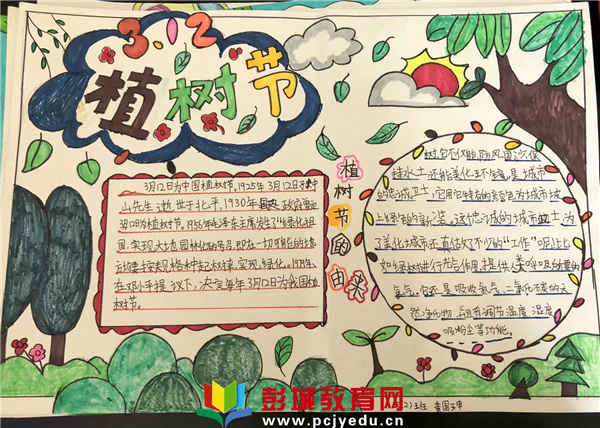 3.12
植树节
3月12日为中国植树节,1925年3月12日孙中
山先生逝世于北平,1930年 政府
3月12日为植树节,1956年毛泽东主席发了"绿化祖
国,实现大地园林化"的号召,即在一切可能的地
方均要按规格种起树来,实现绿化。1979年
在邓小平提议下,决定每年3月12日为我国植
树节。
植树节的由来
树,它不仅能防风固沙,保
持水土,还能美化环境,是城市
的忠诚卫士,它用它特有的 色为城市披
上绿色的 装。这忠诚的城市卫士,为
了美化城市还真估了不少的"工作"呢!比
如绿树进行光合作用,提供人类呼吸所必要的
氧气。它还是吸收氯气、二氧化硫的天
然净化物,且有调节温度、湿度、
吸粉尘等功能。
彭城教育网
www.pcjyedu.cn